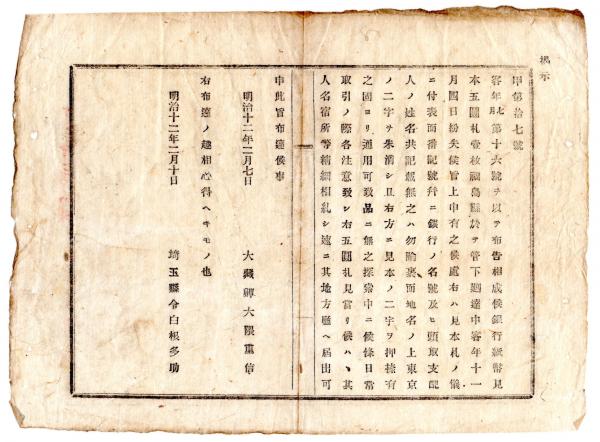 掲示
甲第拾七號
客年七月第十六號ヲ以テ布告相成候銀行紙幣見
本五圓札壹枚福島縣於テ管下廻達中客年十一
月四日紛失候旨上申有之候處右ハ見本札ノ儀
ニ付表面番記號幷ニ銀行ノ名號及ヒ頭取支配
人ノ姓名共記載無之ハ勿論裏面地名ノ上東京
ノ二字ヲ朱消シ且右方ニ見本ノ二字ヲ押捺有
之固ヨリ通用可致品ニ無之探索中ニ候條日常
取引ノ際各注意致シ右五圓札見當リ候ハヽ其
人名宿所等精細相糺シ速ニ其地方廳ヘ届出可
申此旨布達候事
明治十二年二月七日
大藏卿大隈重信
右布達ノ趣相心得ヘキモノ也
明治十二年二月十日
埼玉縣令白根多助